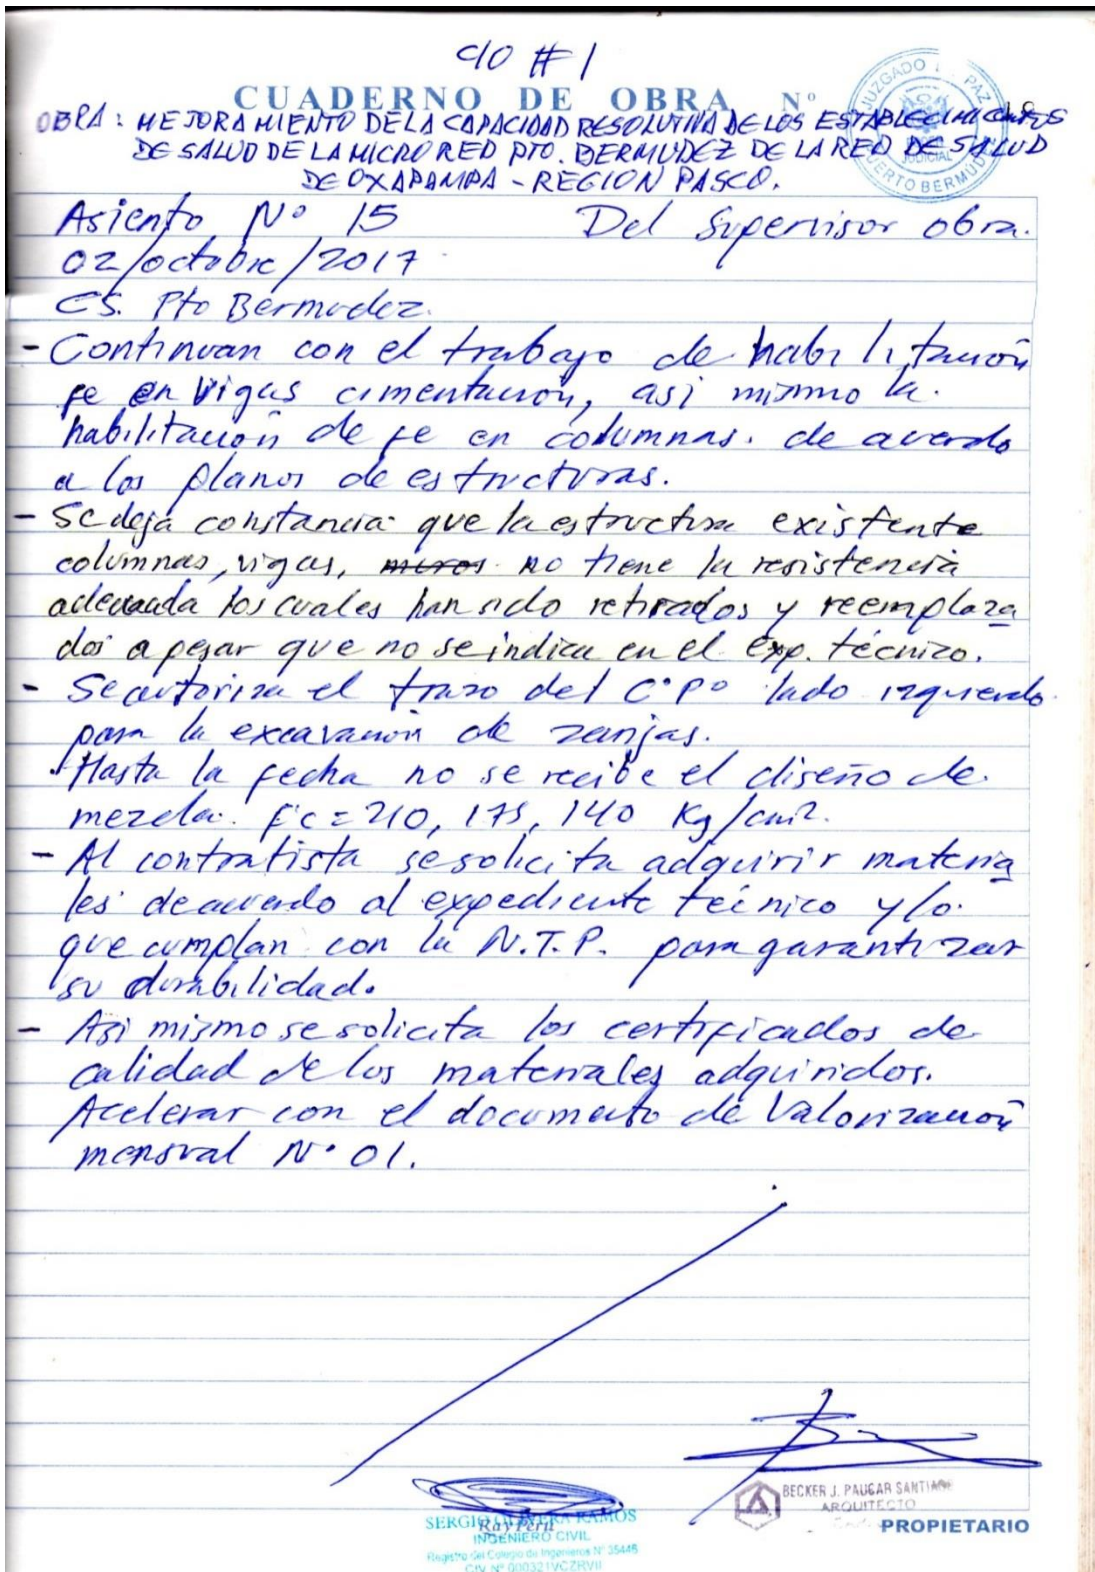 C/O # 1
CUADERNO DE OBRA Nº
OBRA: MEJORAMIENTO DE LA CAPACIDAD RESOLUTIVA DE LOS ESTABLECIMIENTOS
DE SALUD DE LA MICRO RED PTO. BERMUDEZ DE LA RED DE SALUD
DE OXAPAMPA - REGION PASCO.
JUZGADO PAZ
JUDICIAL
PUERTO BERMUDEZ
Asiento Nº 15 Del Supervisor obra.
02/octubre/2017
CS. Pto Bermudez.
- Continuan con el trabajo de habilitación
fe en vigas cimentación, asi mismo la
habilitación de fe en columnas. de acuerdo
a los planos de estructuras.
- Se deja constancia que la estructura existente
columnas, vigas, muros no tiene la resistencia
adecuada los cuales han sido retirados y reemplaza
dos a pesar que no se indica en el exp. técnico.
- Se autoriza el trazo del C°P° lado izquierdo
para la excavación de zanjas.
. Hasta la fecha no se recibe el diseño de
mezcla. f'c = 210, 175, 140 Kg/cm2.
- Al contratista se solicita adquirir materia
les de acuerdo al expediente técnico y/o
que cumplan con la N.T.P. para garantizar
su durabilidad.
- Asi mismo se solicita los certificados de
calidad de los materiales adquiridos.
Acelerar con el documento de Valorización
mensual Nº 01.
SERGIO OLIVERA RAMOS
RayPerú
INGENIERO CIVIL
Registro del Colegio de Ingenieros Nº 35445
CIV Nº 000321VCZRVII
BECKER J. PAUCAR SANTIAGO
ARQUITECTO
PROPIETARIO